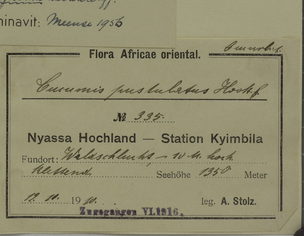 minavit: Meeuse 1956
Flora Africae oriental.
Cucumis pustulatus Hook f
№ 335
Nyassa Hochland — Station Kyimbila
Fundort: Waldschlucht, 10 m hoch
kletternd Seehöhe 1350 Meter
19 leg. A. Stolz.
Zugegangen VI.1916.